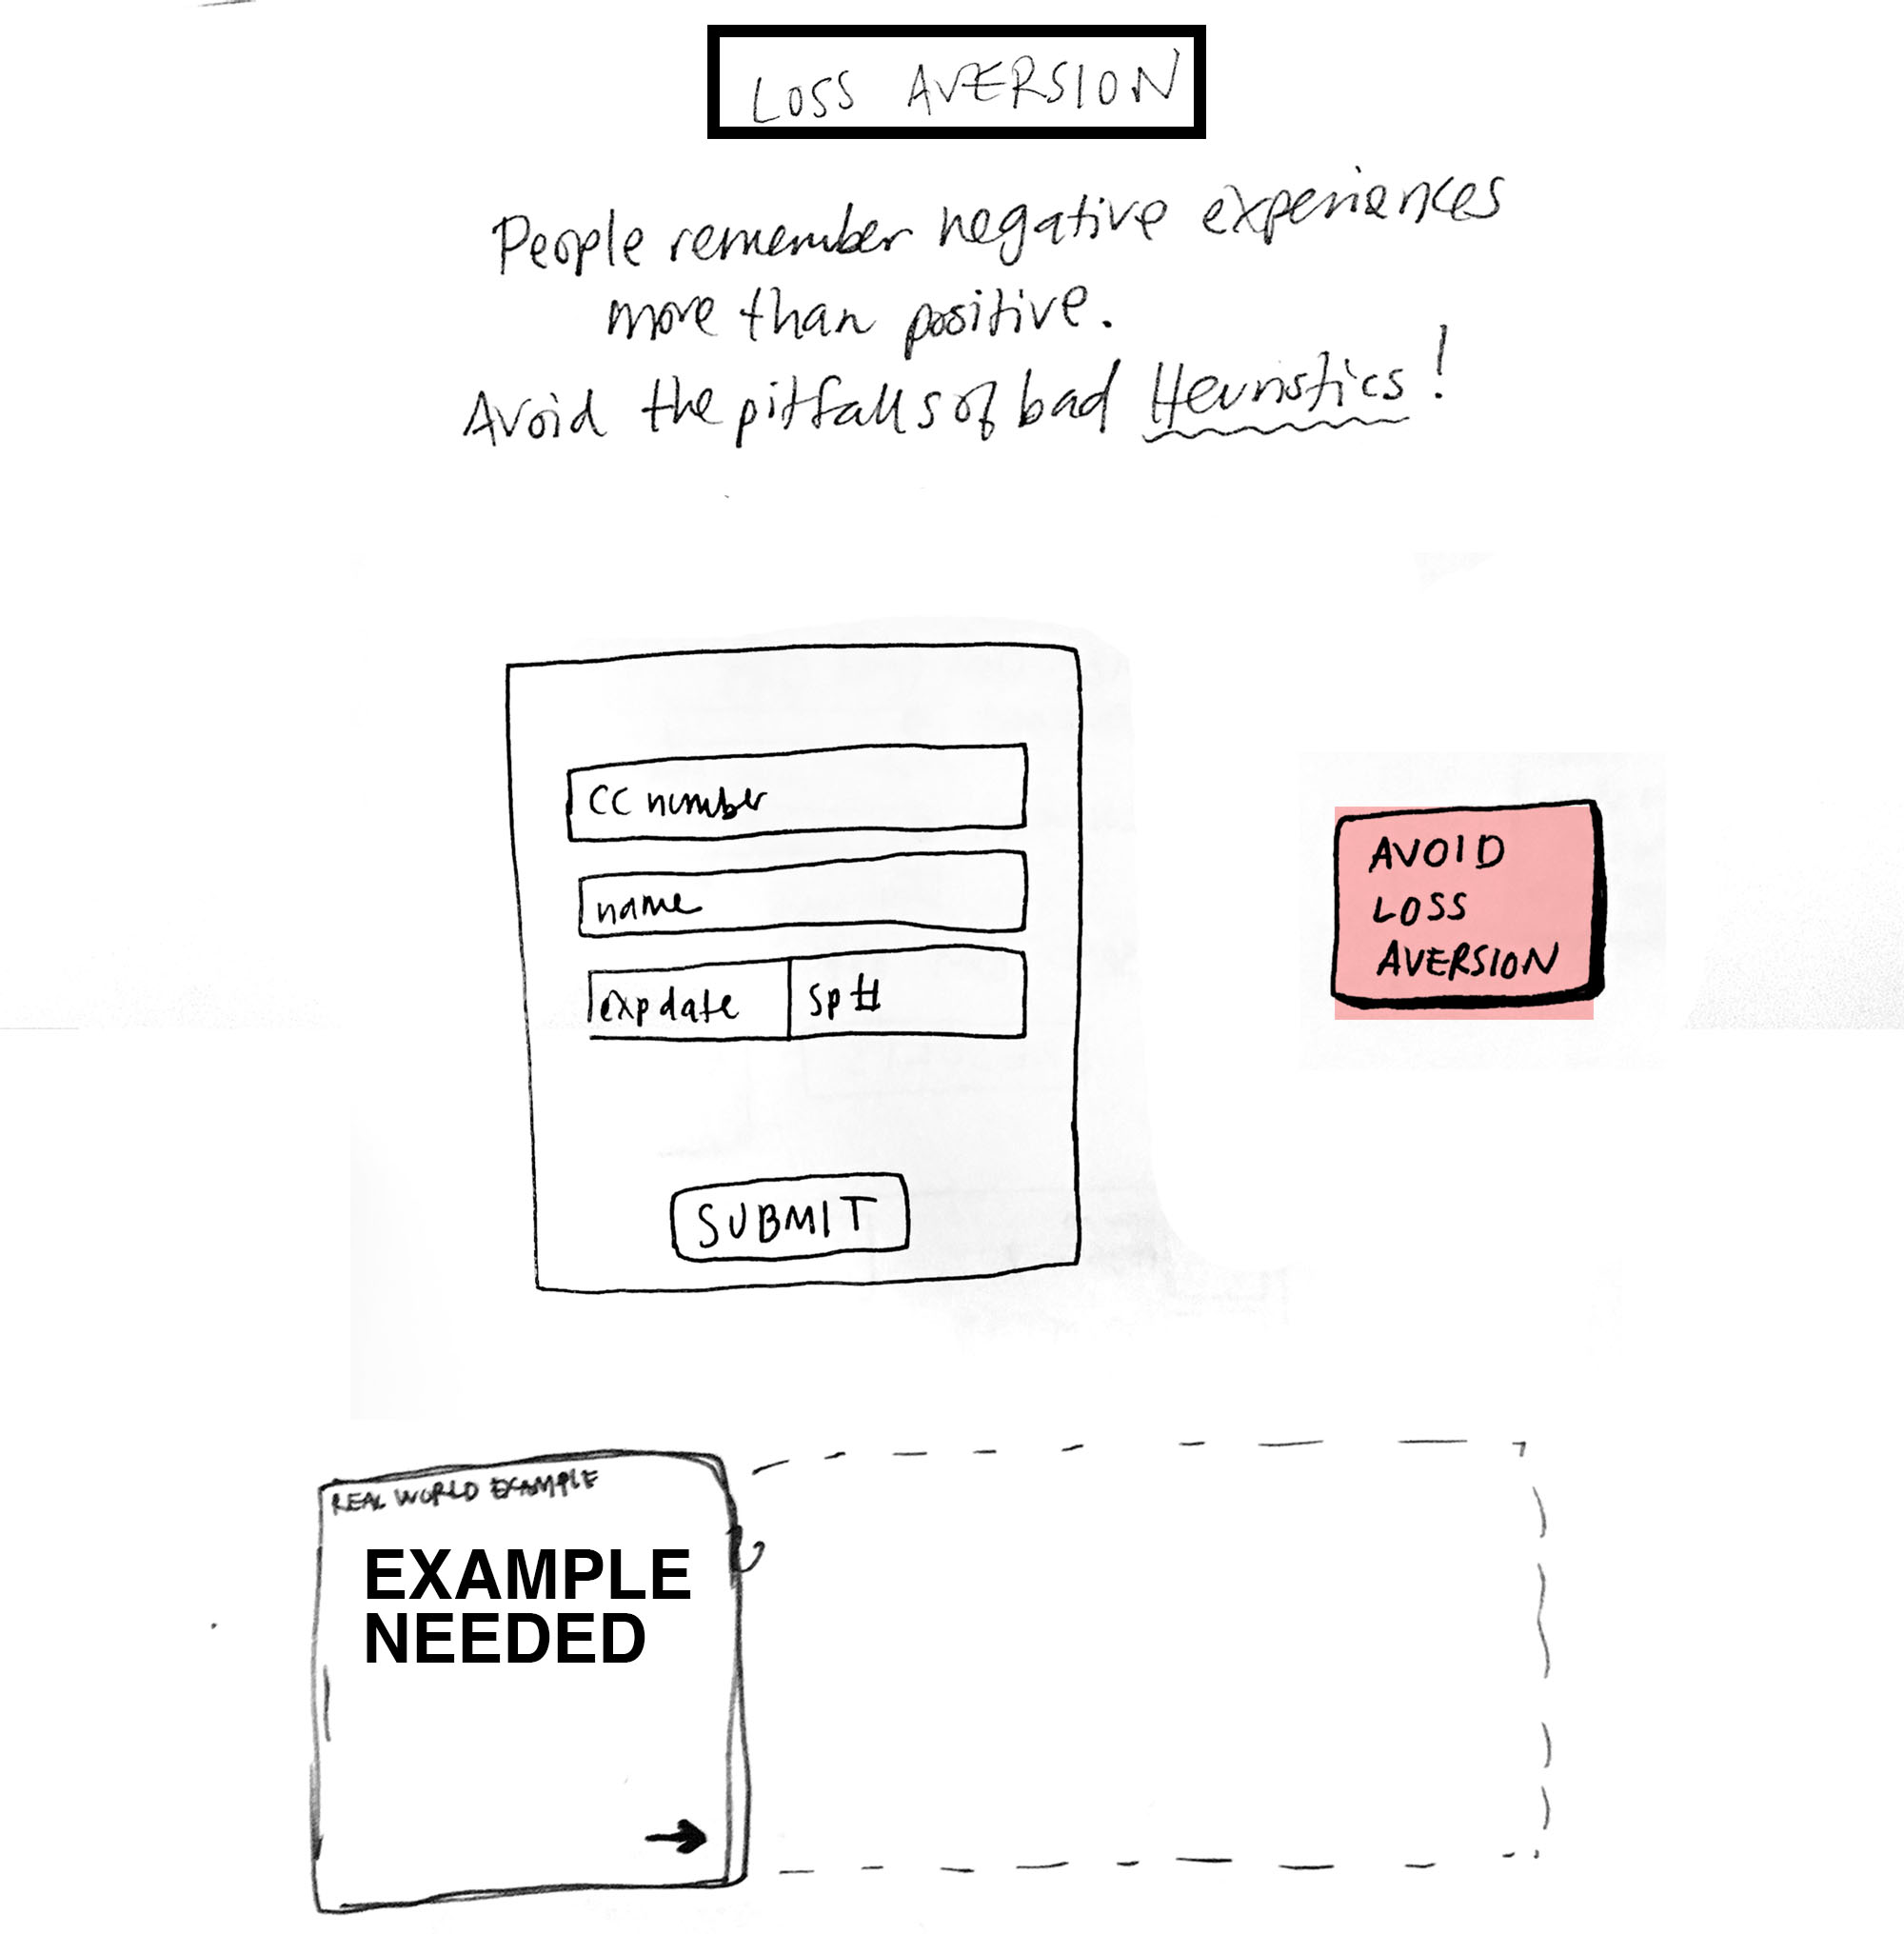 LOSS AVERSION
People remember negative experiances
more than positive.
Avoid the pitfalls of bad Heuristics!
CC number
name
exp date
sp#
SUBMIT
AVOID
LOSS
AVERSION
REAL WORLD EXAMPLE
EXAMPLE
NEEDED